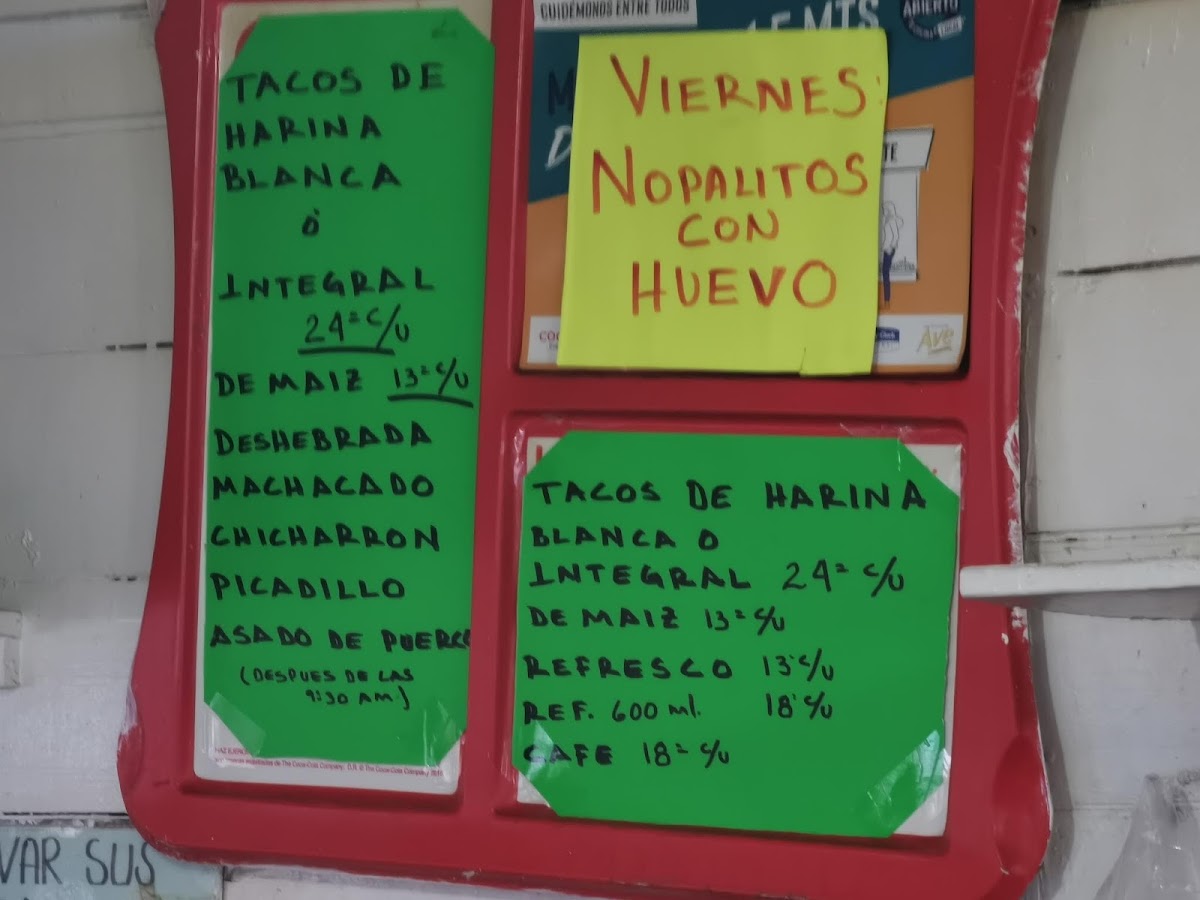 TACOS DE
HARINA
BLANCA
Ó
INTEGRAL
24= c/u
DE MAIZ 13= c/u
DESHEBRADA
MACHACADO
CHICHARRON
PICADILLO
ASADO DE PUERCO
(DESPUES DE LAS
9:30 AM.)
CUIDÉMONOS ENTRE TODOS
1.5 MTS
ABIERTO
VIERNES:
NOPALITOS
CON
HUEVO
Ave
TACOS DE HARINA
BLANCA O
INTEGRAL 24= c/u
DE MAIZ 13= c/u
REFRESCO 13= c/u
REF. 600 ml. 18= c/u
CAFE 18= c/u
VAR SUS